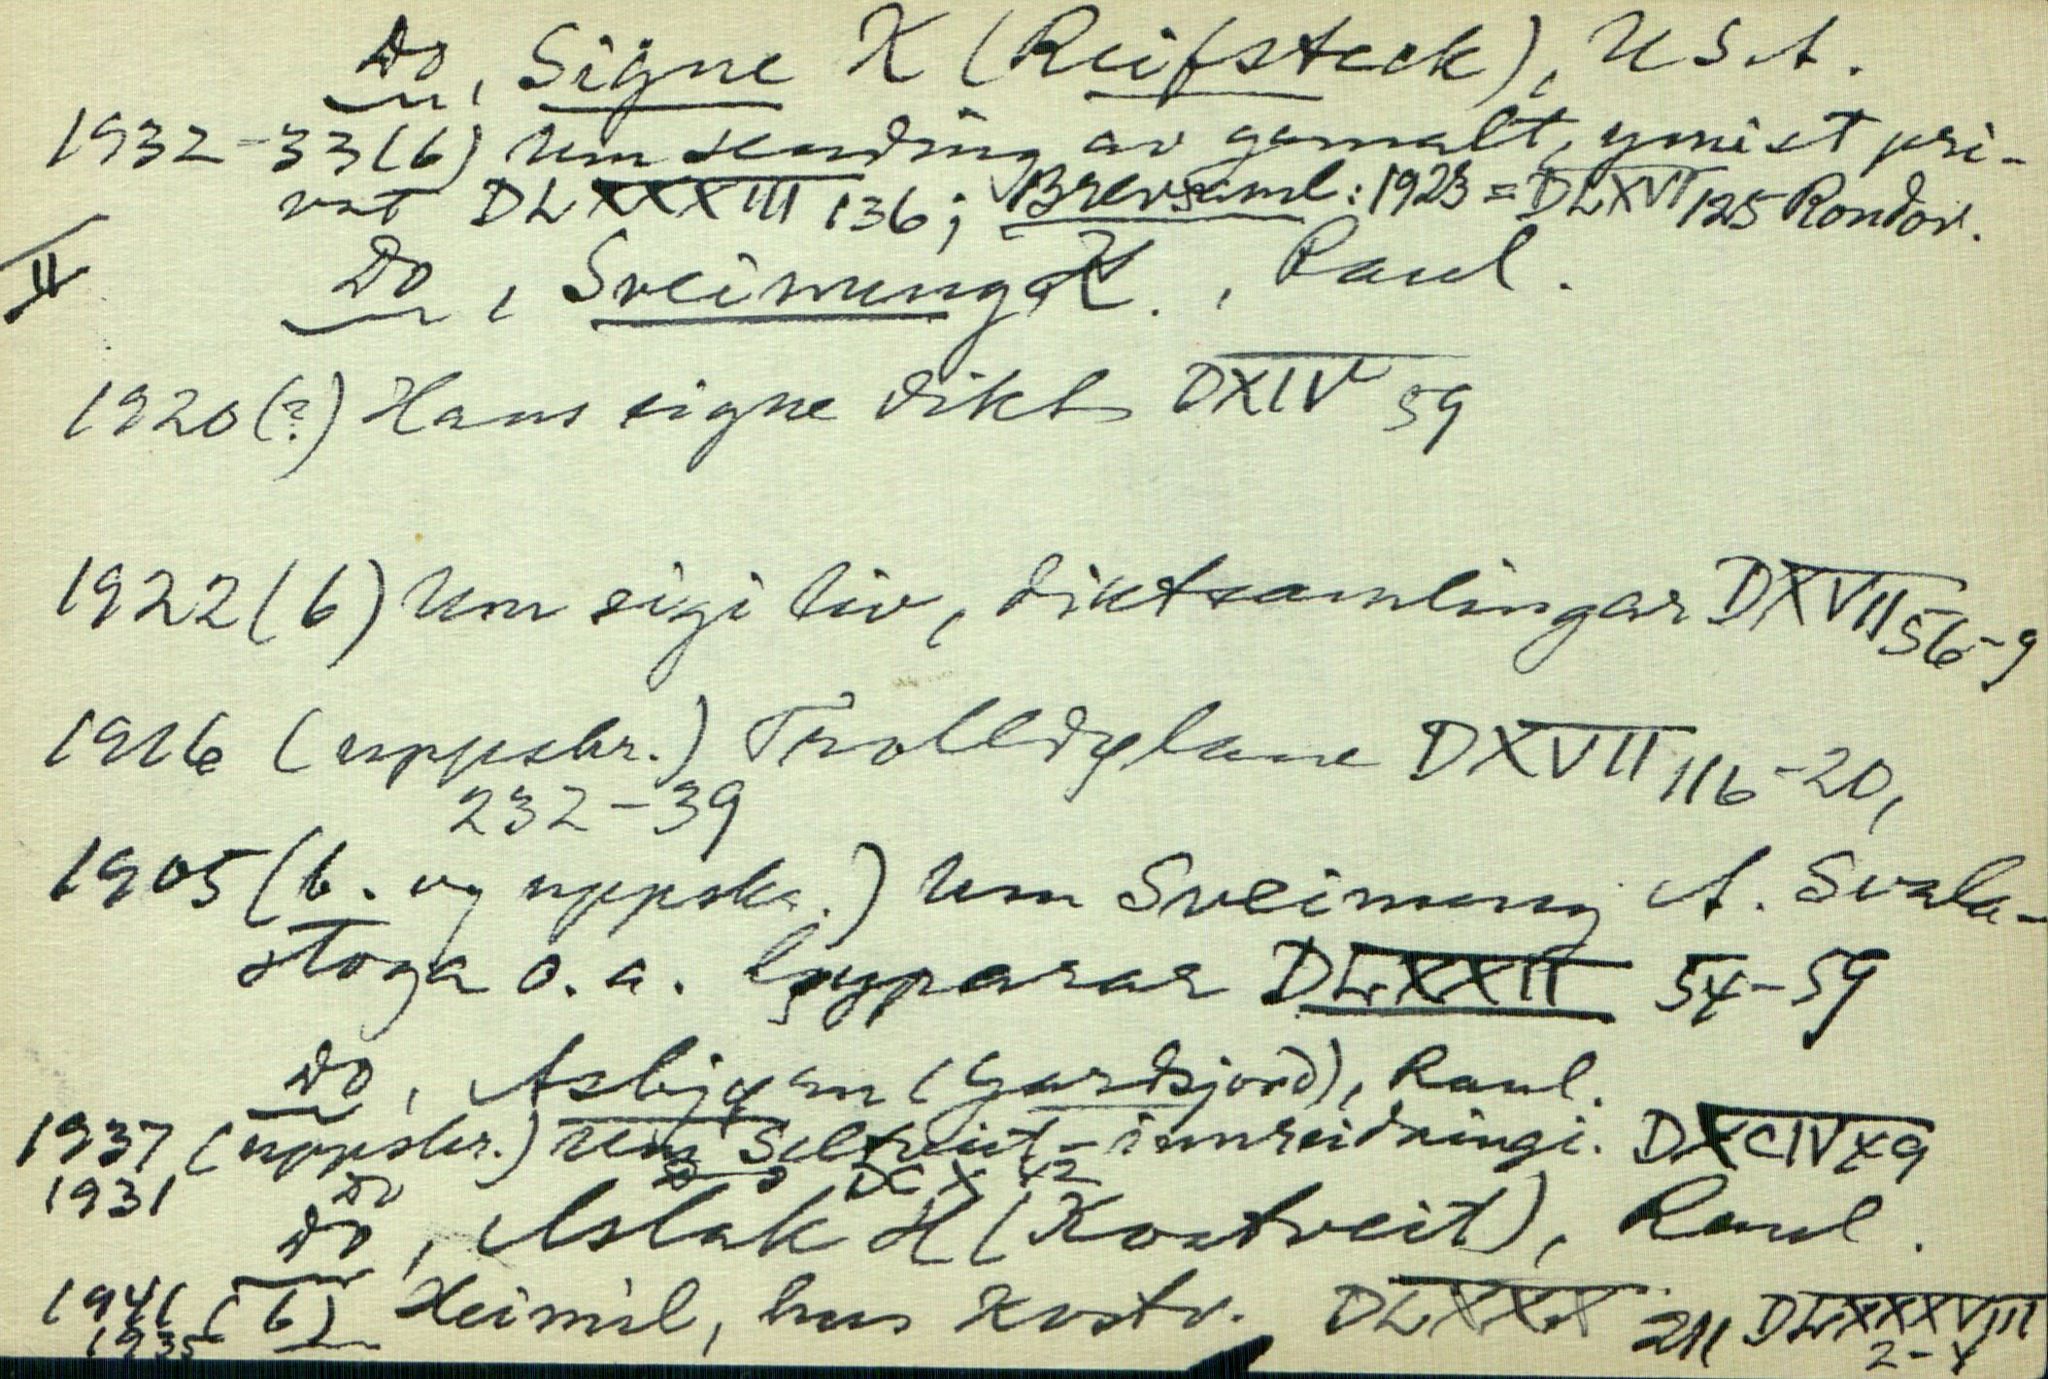 Do, Signe K (Reifsteck), USA.
1932-33(b) Um sending av gamalt, ymist pri-
vat DLXXXIII 136; Brevsaml: 1923 = DLXVI 125 Rondov.
II Do, Sveinung K., Raul.
1920(?) Hans eigne dikt DXIV 59
1922(b) Um eigi liv, diktsamlingar DXVII 56-9
1916 (uppskr.) Trolldylane DXVII 116-20,
232-39
1905 (b. og uppskr.) Um Sveinung A. Svala-
stoga o.a. DLXXII 54-59
Do, Asbjørn (Gardsjord), Raul.
1937 (uppskr.) Um Seltveit-innreidningi. DXCIV 49
1931 Do DCX 42
Do, Aslak H (Kostveit), Raul.
1941 (b) Heimil, hus Kostv. DLXXX 211 DLXXXVIII
1935 2-4